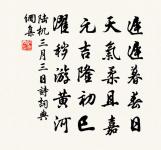 遲遲暮春日
天氣柔且嘉
元吉隆初巳
濯穢游黄河
陸机三月三日詩詞典
網集